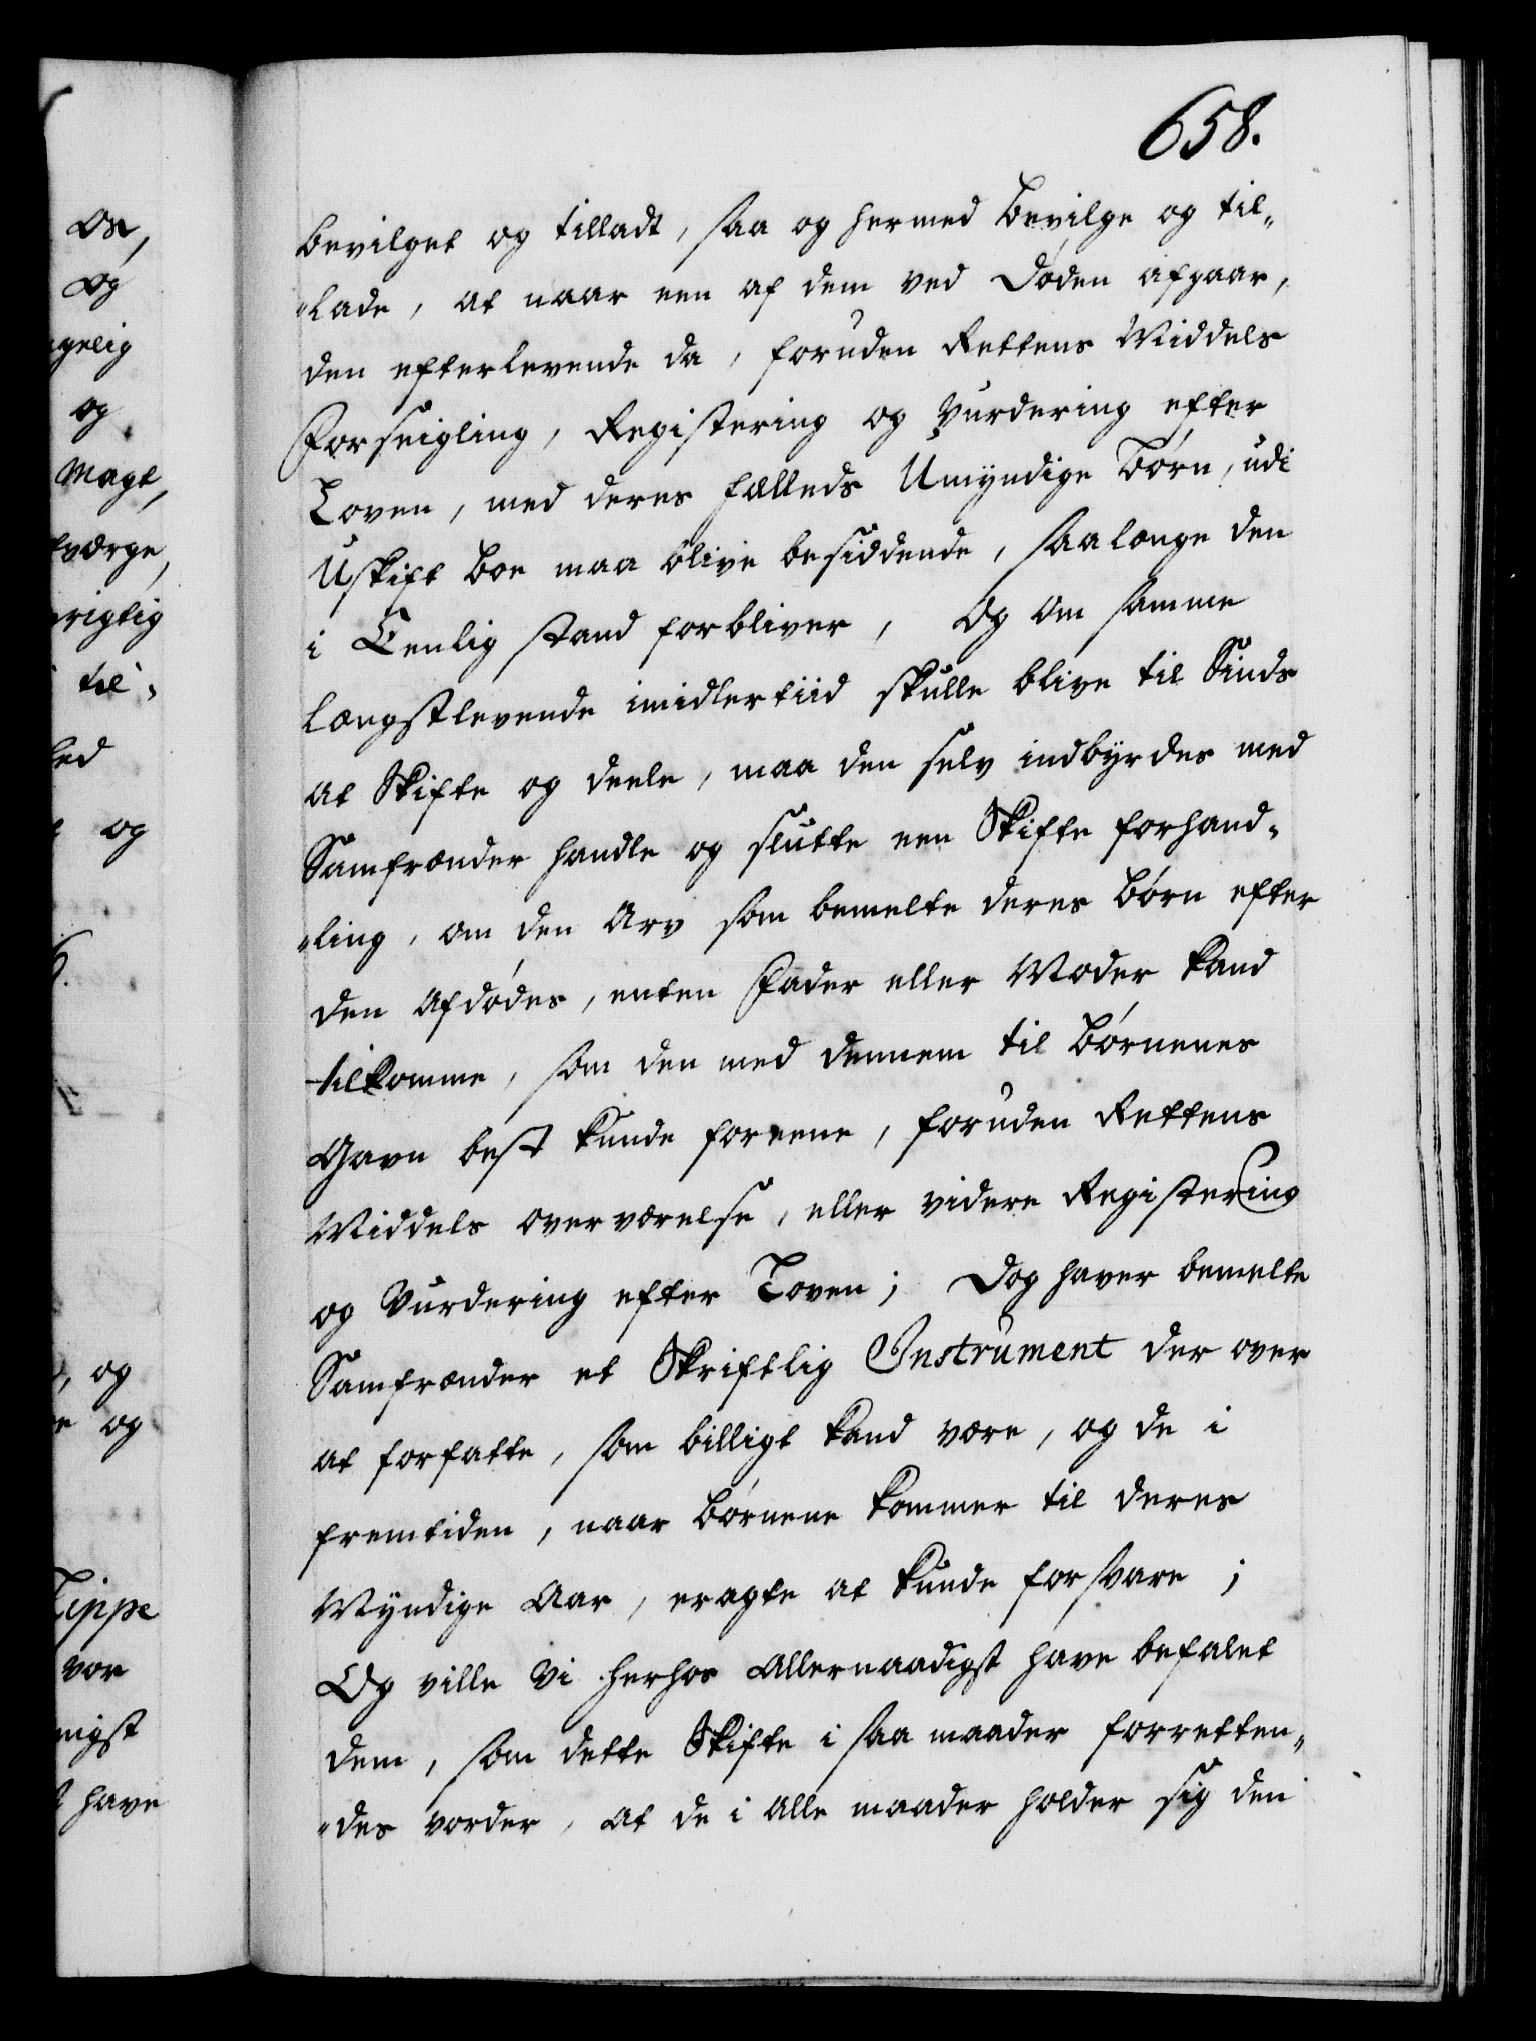 658.
bevilget og tilladt, saa og hermed bevilge og til„
„lade, at naar een af dem ved Døden afgaar,
den efterlevende da, foruden Rettens Middels
Forseigling, Registering og Vurdering efter
Loven, med deres fælleds Umyndige Børn, udi
Uskift boe maa blive besiddende, saalænge den
i Eenlig stand forbliver, Og om samme
længstlevende imidlertiid skulle blive til Sinds
at Skifte og deele, maa den selv indbyrdes med
Samfrænder handle og slutte een Skifte forhand„
„ling, om den Arv som bemelte deres børn efter
den Afdødes, enten Fader eller Moder kand
tilkomme, som den med dennem til børnenes
Gavn best kunde foreene, foruden Rettens
Middels overværelse, eller videre Registering
og Vurdering efter Loven; Dog haver bemelte
Samfrænder et Skriftlig Instrument der over
at forfatte, som billigt kand være, og de i
fremtiden, naar børnene kommer til deres
Myndige Aar, eragte at kunde forsvare;
Og ville Vi herhos Allernaadigst have befalet
dem, som dette Skifte i saa maader forretten„
„des vorder, at de i alle maader holder sig den